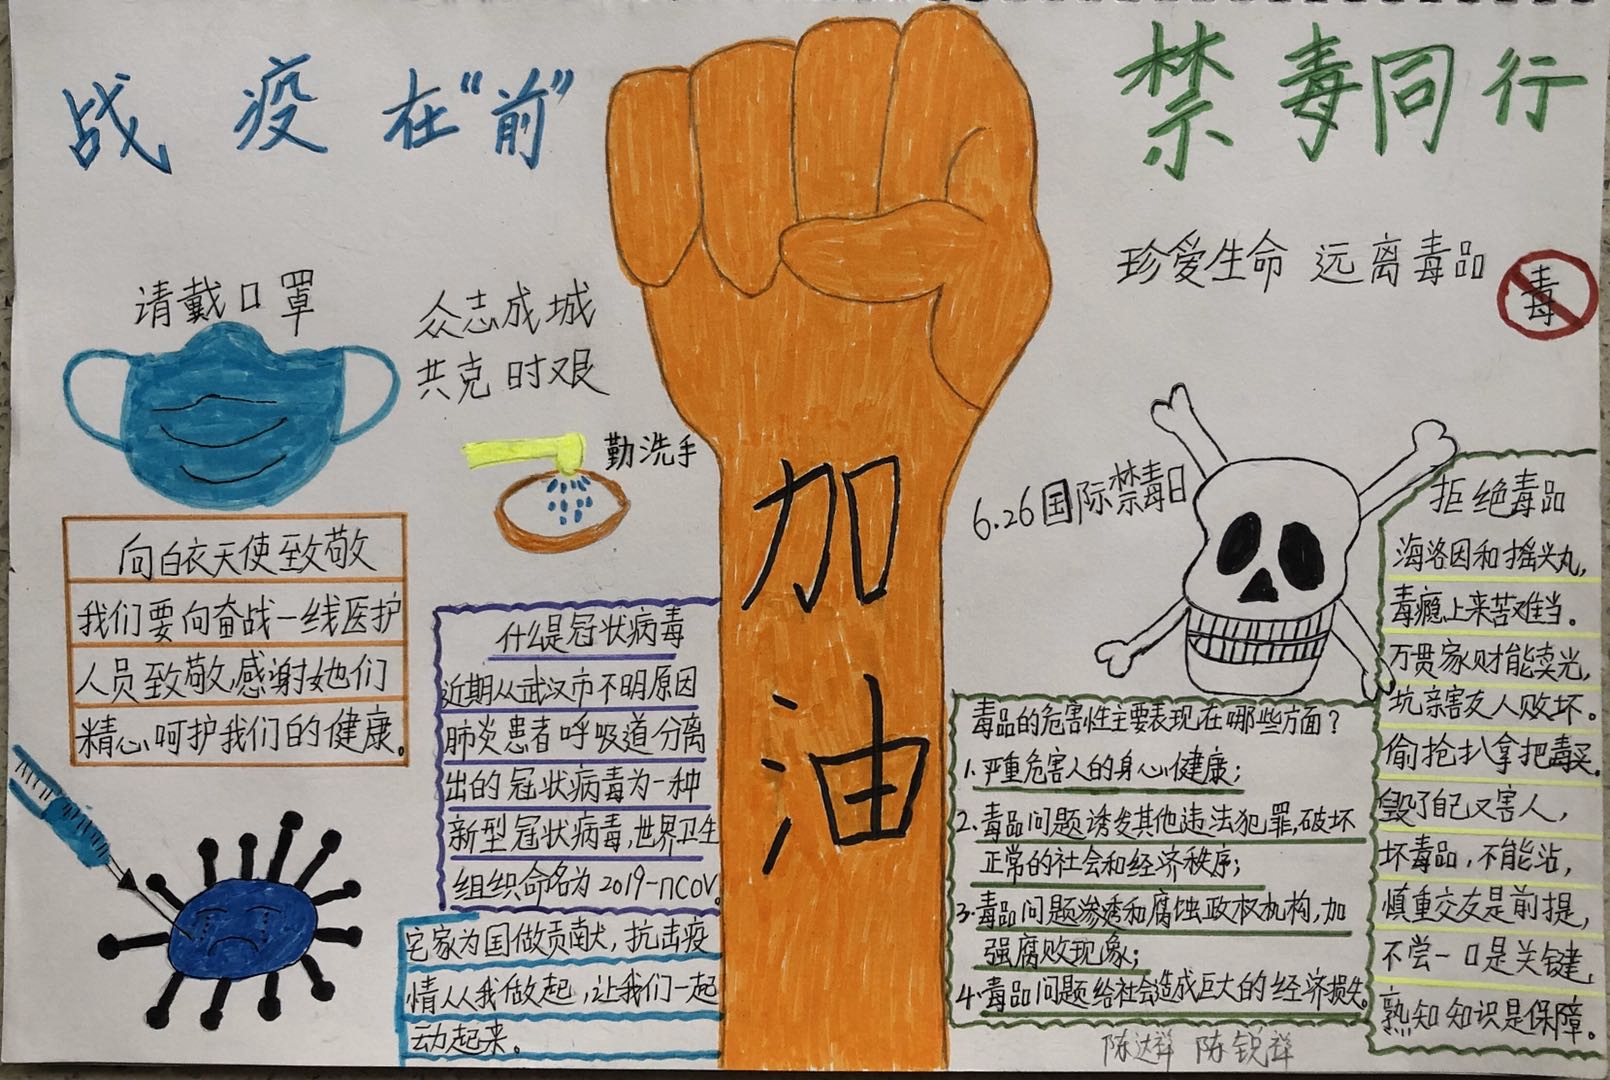 战疫在“前”
禁毒同行
请戴口罩
众志成城
共克时艰
勤洗手
向白衣天使致敬
我们要向奋战一线医护
人员致敬,感谢她们
精心呵护我们的健康。
什么是冠状病毒
近期从武汉市不明原因
肺炎患者呼吸道分离
出的冠状病毒为一种
新型冠状病毒,世界卫生
组织命名为2019-nCOV。
宅家为国做贡献,抗击疫
情从我做起,让我们一起
动起来。
加
油
珍爱生命 远离毒品
毒
6.26国际禁毒日
毒品的危害性主要表现在哪些方面?
1.严重危害人的身心健康;
2.毒品问题诱发其他违法犯罪,破坏
正常的社会和经济秩序;
3.毒品问题渗透和腐蚀政权机构,加
强腐败现象;
4.毒品问题给社会造成巨大的经济损失。
拒绝毒品
海洛因和摇头丸,
毒瘾上来苦难当。
万贯家财能卖光,
坑亲害友人败坏。
偷抢扒拿把毒买,
毁了自己又害人,
坏毒品,不能沾,
慎重交友是前提,
不尝一口是关键,
熟知知识是保障。
陈达祥 陈锐祥